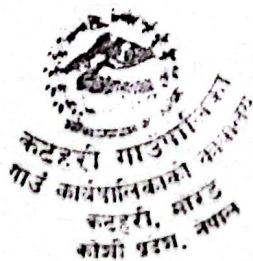 कटहरी गाउँपालिका
गाउँ कार्यपालिकाको कार्यालय
कटहरी, मोरङ
कोशी प्रदेश, नेपाल